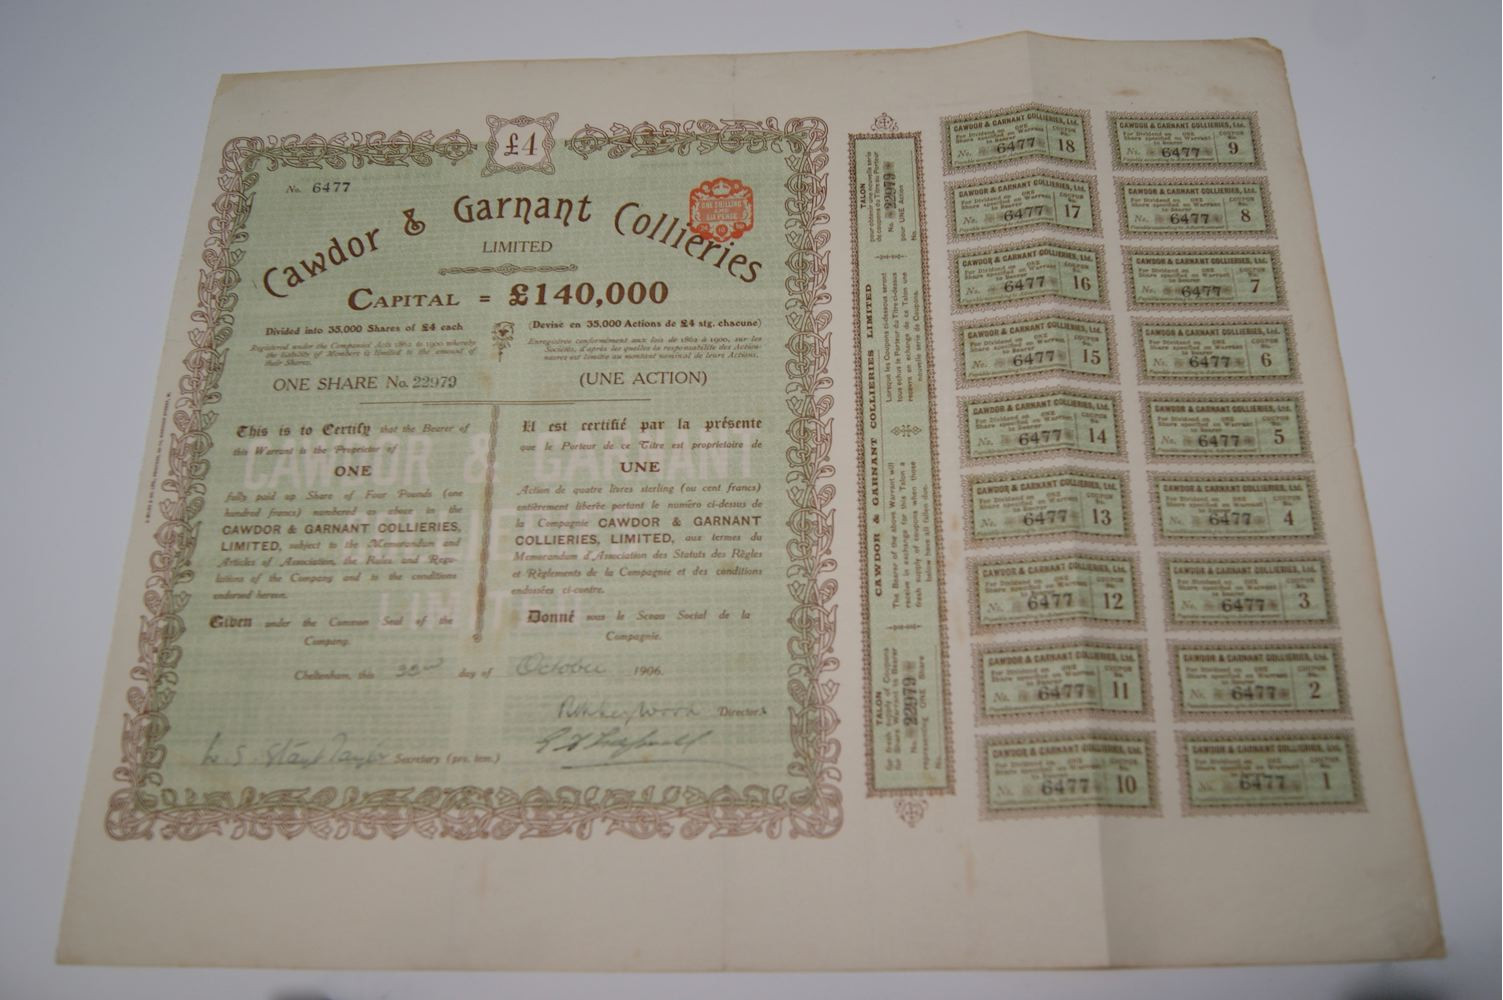 £4
No. 6477
ONE SHILLING
AND
SIX PENCE
Cawdor & Garnant Collieries
LIMITED
CAPITAL = £140,000
Divided into 35,000 Shares of £4 each
Registered under the Companies Acts 1862 to 1900 whereby
the liability of Members is limited to the amount of
their Shares.
ONE SHARE No. 22979
(Devisé en 35,000 Actions de £4 stg. chacune)
Enregistrée conformément aux lois de 1862 à 1900, sur les
Sociétés, d'après les quelles la responsabilité des Action-
naires est limitée au montant nominal de leurs Actions.
(UNE ACTION)
This is to Certify that the Bearer of
this Warrant is the Proprietor of
ONE
fully paid up Share of Four Pounds (one
hundred francs) numbered as above in the
CAWDOR & GARNANT COLLIERIES,
LIMITED, subject to the Memorandum and
Articles of Association, the Rules and Regu-
lations of the Company and to the conditions
endorsed hereon.
Given under the Common Seal of the
Company.
Il est certifié par la présente
que le Porteur de ce Titre est propriétaire de
UNE
Action de quatre livres sterling (ou cent francs)
entièrement libérée portant le numéro ci-dessus de
la Compagnie CAWDOR & GARNANT
COLLIERIES, LIMITED, aux termes du
Memorandum d'Association des Statuts des Règles
et Règlements de la Compagnie et des conditions
endossées ci-contre.
Donné sous le Sceau Social de la
Compagnie.
CAWDOR & GARNANT
LIMITED
Cheltenham, this day of October 1906.
Directors
Secretary (pro. tem.)
TALON
pour obtenir une nouvelle série
de coupons du Titre au Porteur
No. 22979
pour UNE Action
No.
CAWDOR & GARNANT COLLIERIES LIMITED
Lorsque les Coupons ci-dessous seront
tous échus le Porteur du Titre ci-dessus
recevra en échange de ce Talon une
nouvelle série de Coupons.
The Bearer of the above Warrant will
receive in exchange for this Talon a
fresh supply of coupons when those
below have all fallen due.
TALON
for fresh supply of Coupons
for Share Warrant to Bearer
No. 22979
representing ONE Share
No.
CAWDOR & GARNANT COLLIERIES, Ltd.
For Dividend on ONE COUPON
Share specified on Warrant No.
to Bearer
No. 6477 18
CAWDOR & GARNANT COLLIERIES, Ltd.
For Dividend on ONE COUPON
Share specified on Warrant No.
to Bearer
No. 6477 9
CAWDOR & GARNANT COLLIERIES, Ltd.
For Dividend on ONE COUPON
Share specified on Warrant No.
to Bearer
No. 6477 17
CAWDOR & GARNANT COLLIERIES, Ltd.
For Dividend on ONE COUPON
Share specified on Warrant No.
to Bearer
No. 6477 8
CAWDOR & GARNANT COLLIERIES, Ltd.
For Dividend on ONE COUPON
Share specified on Warrant No.
to Bearer
No. 6477 16
CAWDOR & GARNANT COLLIERIES, Ltd.
For Dividend on ONE COUPON
Share specified on Warrant No.
to Bearer
No. 6477 7
CAWDOR & GARNANT COLLIERIES, Ltd.
For Dividend on ONE COUPON
Share specified on Warrant No.
to Bearer
No. 6477 15
CAWDOR & GARNANT COLLIERIES, Ltd.
For Dividend on ONE COUPON
Share specified on Warrant No.
to Bearer
No. 6477 6
CAWDOR & GARNANT COLLIERIES, Ltd.
For Dividend on ONE COUPON
Share specified on Warrant No.
to Bearer
No. 6477 14
CAWDOR & GARNANT COLLIERIES, Ltd.
For Dividend on ONE COUPON
Share specified on Warrant No.
to Bearer
No. 6477 5
CAWDOR & GARNANT COLLIERIES, Ltd.
For Dividend on ONE COUPON
Share specified on Warrant No.
to Bearer
No. 6477 13
CAWDOR & GARNANT COLLIERIES, Ltd.
For Dividend on ONE COUPON
Share specified on Warrant No.
to Bearer
No. 6477 4
CAWDOR & GARNANT COLLIERIES, Ltd.
For Dividend on ONE COUPON
Share specified on Warrant No.
to Bearer
No. 6477 12
CAWDOR & GARNANT COLLIERIES, Ltd.
For Dividend on ONE COUPON
Share specified on Warrant No.
to Bearer
No. 6477 3
CAWDOR & GARNANT COLLIERIES, Ltd.
For Dividend on ONE COUPON
Share specified on Warrant No.
to Bearer
No. 6477 11
CAWDOR & GARNANT COLLIERIES, Ltd.
For Dividend on ONE COUPON
Share specified on Warrant No.
to Bearer
No. 6477 2
CAWDOR & GARNANT COLLIERIES, Ltd.
For Dividend on ONE COUPON
Share specified on Warrant No.
to Bearer
No. 6477 10
CAWDOR & GARNANT COLLIERIES, Ltd.
For Dividend on ONE COUPON
Share specified on Warrant No.
to Bearer
No. 6477 1